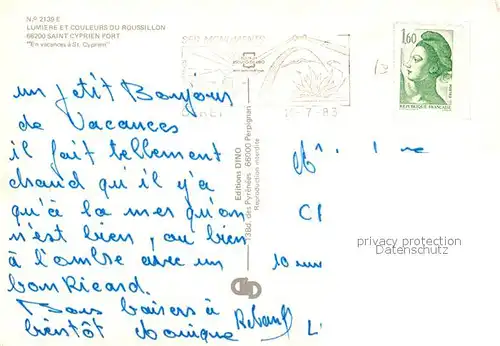 N.º 2139 E
LUMIÈRE ET COULEURS DU ROUSSILLON
66200 SAINT CYPRIEN PORT
"En vacances à St. Cyprien"
SES MONUMENTS
-7-83
1,60
REPUBLIQUE FRANÇAISE
un petit Bonjour
de Vacances
il fait tellement
chaud qu'il y'a
qu'à la mer qu'on
n'est bien, ou bien
à l'ombre avec un
bon Ricard.
Bons baisers à
bientôt
Editions DINO
13Bd. des Pyrénées 66000 Perpignan
Reproduction interdite
privacy protection
Datenschutz